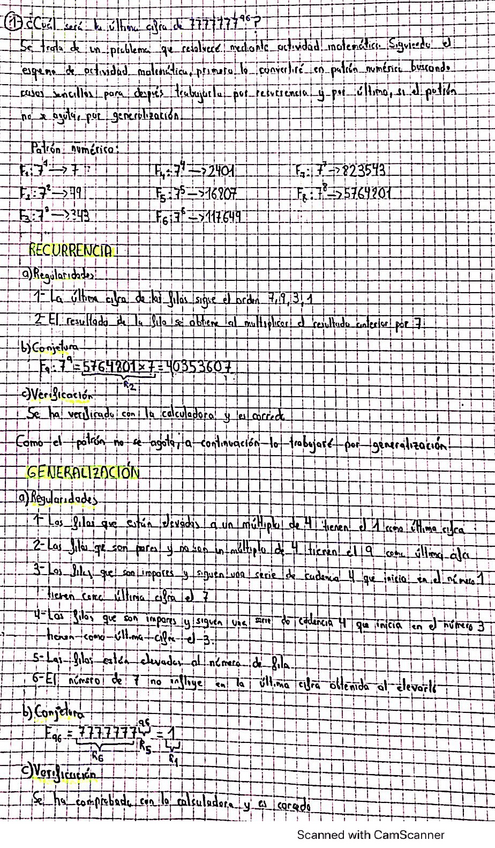 1) ¿Cuál será la última cifra de 7777777⁹⁶?
Se trata de un problema que resolveré mediante actividad matemática. Siguiendo el
esquema de actividad matemática, primero lo convertiré en patrón numérico buscando
casos sencillos para después trabajarlo por recurrencia y por último, si el patrón
no se agota, por generalización.
Patrón numérico:
F₁: 7¹ → 7 F₄: 7⁴ → 2401 F₇: 7⁷ → 823543
F₂: 7² → 49 F₅: 7⁵ → 16807 F₈: 7⁸ → 5764801
F₃: 7³ → 343 F₆: 7⁶ → 117649
RECURRENCIA
a) Regularidades:
1- La última cifra de las filas sigue el orden 7, 9, 3, 1
2- El resultado de la fila se obtiene al multiplicar el resultado anterior por 7
b) Conjetura
F₉: 7⁹ = 5764801 x 7 = 40353607
R₂
c) Verificación
Se ha verificado con la calculadora y es correcto
Como el patrón no se agota, a continuación lo trabajaré por generalización
GENERALIZACIÓN
a) Regularidades
1- Las filas que están elevadas a un múltiplo de 4 tienen el 1 como última cifra
2- Las filas que son pares y no son un múltiplo de 4 tienen el 9 como última cifra
3- Las filas que son impares y siguen una serie de cadencia 4 que inicia en el número 1
tienen como última cifra el 7
4- Las filas que son impares y siguen una serie de cadencia 4 que inicia en el número 3
tienen como última cifra el 3.
5- Las filas están elevadas al número de fila
6- El número de 7 no influye en la última cifra obtenida al elevarlo
b) Conjetura
F₉₆ = 7777777⁹⁶ = 1
R₆ R₅ R₁
c) Verificación
Se ha comprobado con la calculadora y es correcto
Scanned with CamScanner